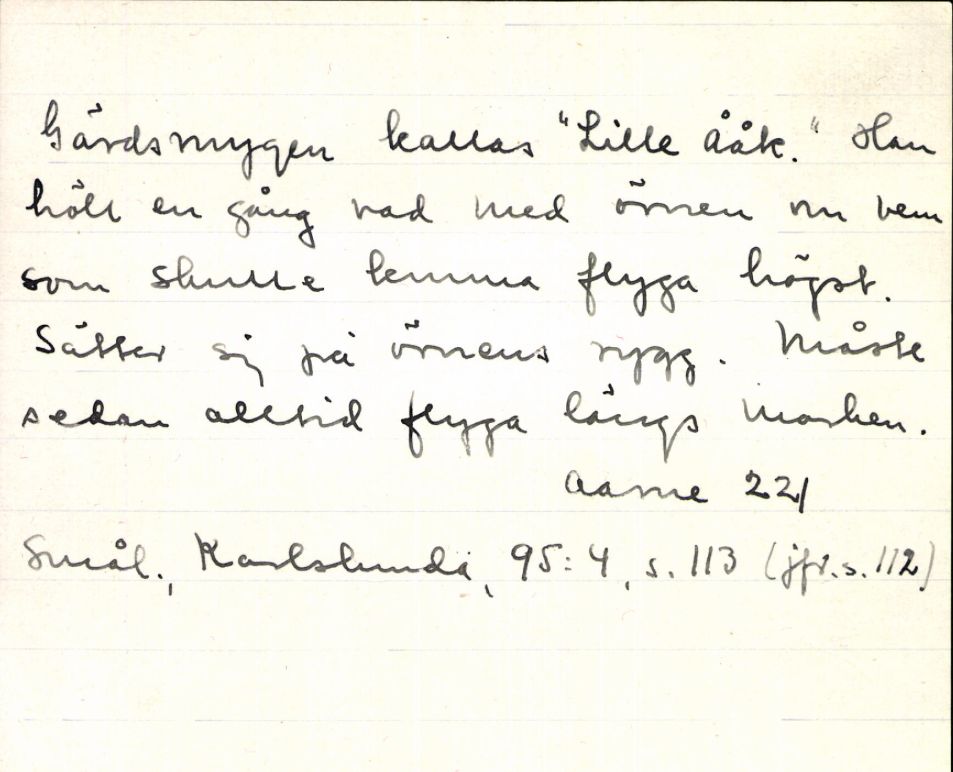 Gärdsmygen kallas "Lille Ååk." Han
höll en gång vad med örnen om vem
som skulle kunna flyga högst.
Sätter sig på örnens rygg. Måste
sedan alltid flyga längs marken.
Aarne 221
Smål., Karlslunda, 95:4, s. 113 (jfr. s. 112)